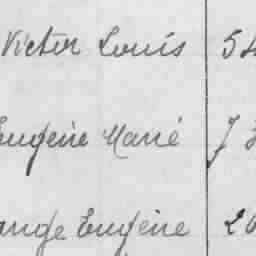 Victor Louis 54
Eugène Marie 7
ange Eugène 20